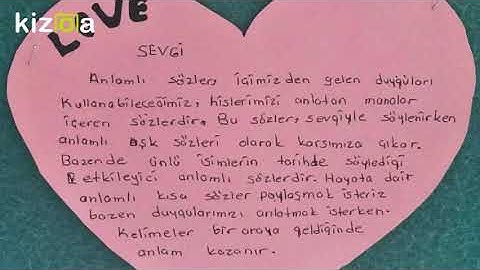 kizoa
LOVE
SEVGİ
Anlamlı sözler, içimizden gelen duyguları
kullanabileceğimiz, hislerimizi anlatan manalar
içeren sözlerdir. Bu sözler, sevgiyle söylenirken
anlamlı aşk sözleri olarak karşımıza çıkar.
Bazende ünlü isimlerin tarihde söylediği
etkileyici anlamlı sözlerdir. Hayata dair
anlamlı kısa sözler paylaşmak isteriz
bazen duygularımızı anlatmak isterken.
Kelimeler bir araya geldiğinde
anlam kazanır.